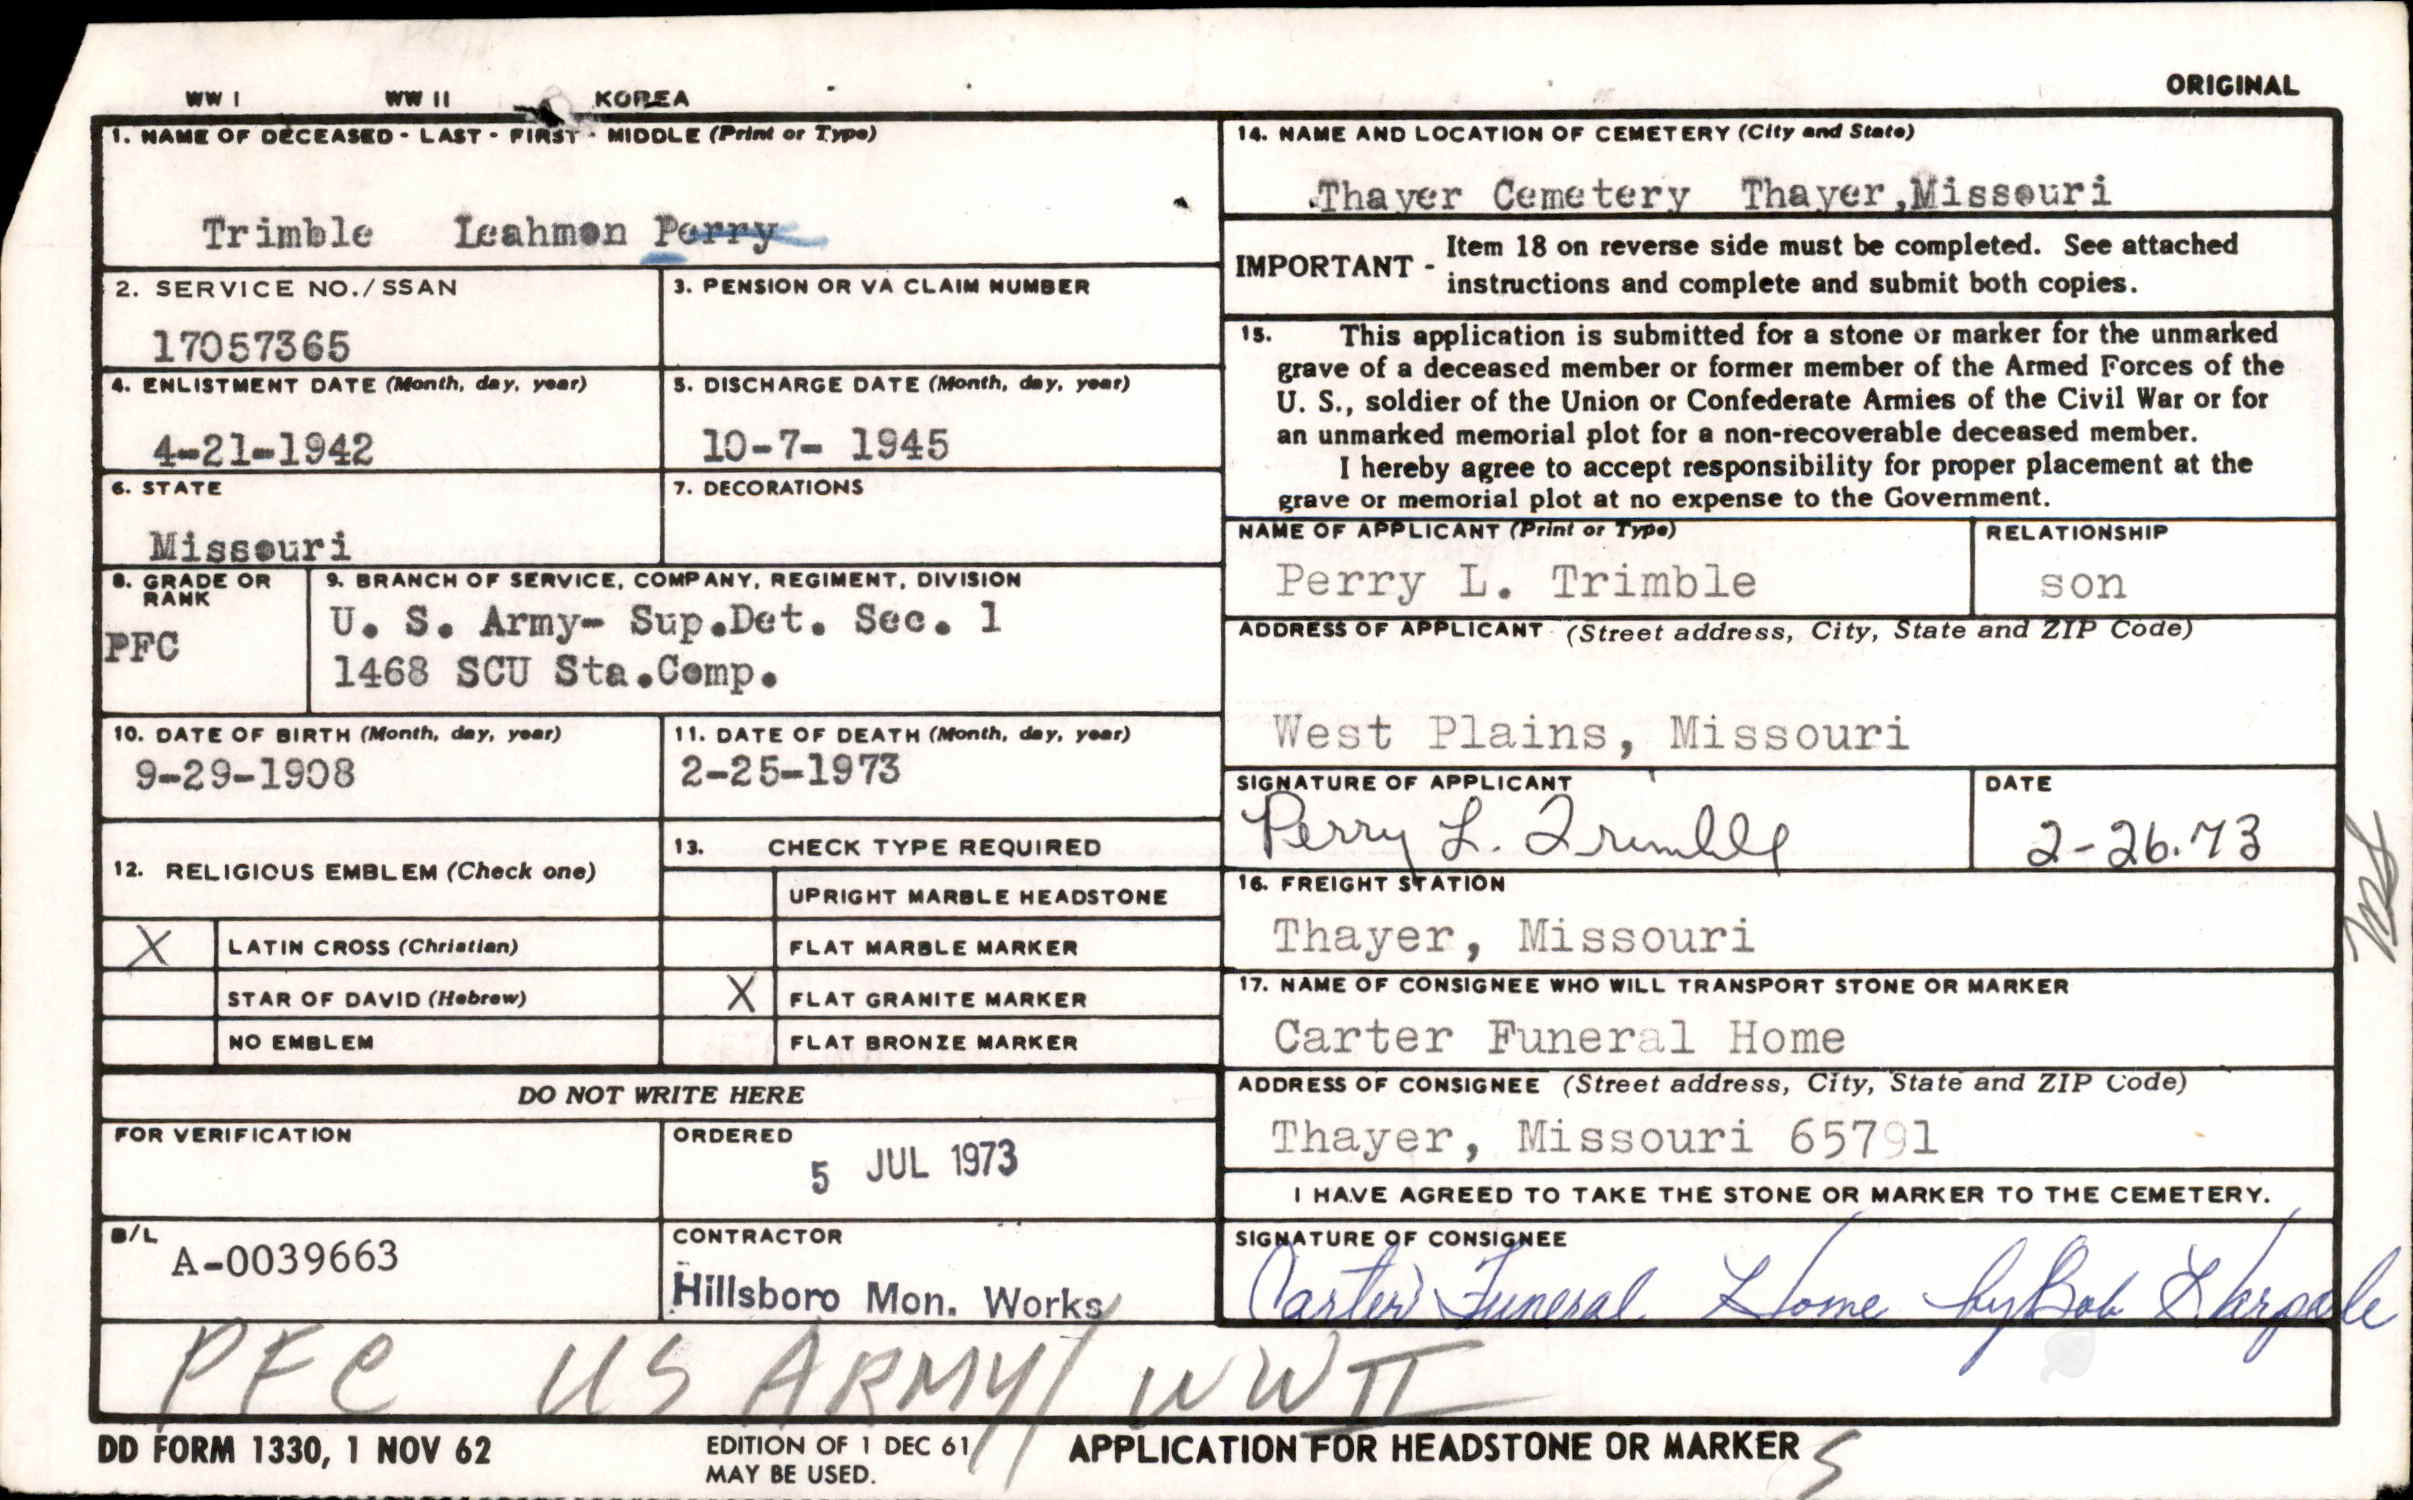 WW I WW II KOREA
ORIGINAL
1. NAME OF DECEASED - LAST - FIRST - MIDDLE (Print or Type)
Trimble Leahmon Perry
2. SERVICE NO./SSAN
17057365
3. PENSION OR VA CLAIM NUMBER
4. ENLISTMENT DATE (Month, day, year)
4-21-1942
5. DISCHARGE DATE (Month, day, year)
10-7- 1945
6. STATE
Missouri
7. DECORATIONS
8. GRADE OR
RANK
PFC
9. BRANCH OF SERVICE, COMPANY, REGIMENT, DIVISION
U. S. Army- Sup.Det. Sec. 1
1468 SCU Sta.Comp.
10. DATE OF BIRTH (Month, day, year)
9-29-1908
11. DATE OF DEATH (Month, day, year)
2-25-1973
12. RELIGIOUS EMBLEM (Check one)
X LATIN CROSS (Christian)
STAR OF DAVID (Hebrew)
NO EMBLEM
13. CHECK TYPE REQUIRED
UPRIGHT MARBLE HEADSTONE
FLAT MARBLE MARKER
X FLAT GRANITE MARKER
FLAT BRONZE MARKER
DO NOT WRITE HERE
FOR VERIFICATION
ORDERED
5 JUL 1973
B/L
A-0039663
CONTRACTOR
Hillsboro Mon. Works
14. NAME AND LOCATION OF CEMETERY (City and State)
Thayer Cemetery Thayer,Missouri
IMPORTANT - Item 18 on reverse side must be completed. See attached
instructions and complete and submit both copies.
15. This application is submitted for a stone or marker for the unmarked
grave of a deceased member or former member of the Armed Forces of the
U. S., soldier of the Union or Confederate Armies of the Civil War or for
an unmarked memorial plot for a non-recoverable deceased member.
I hereby agree to accept responsibility for proper placement at the
grave or memorial plot at no expense to the Government.
NAME OF APPLICANT (Print or Type)
Perry L. Trimble
RELATIONSHIP
son
ADDRESS OF APPLICANT (Street address, City, State and ZIP Code)
West Plains, Missouri
SIGNATURE OF APPLICANT
Perry L. Trimble
DATE
2-26-73
16. FREIGHT STATION
Thayer, Missouri
17. NAME OF CONSIGNEE WHO WILL TRANSPORT STONE OR MARKER
Carter Funeral Home
ADDRESS OF CONSIGNEE (Street address, City, State and ZIP Code)
Thayer, Missouri 65791
I HAVE AGREED TO TAKE THE STONE OR MARKER TO THE CEMETERY.
SIGNATURE OF CONSIGNEE
Carter Funeral Home by Bob
PFC US ARMY/ WW II
DD FORM 1330, 1 NOV 62
EDITION OF 1 DEC 61
MAY BE USED.
APPLICATION FOR HEADSTONE OR MARKER